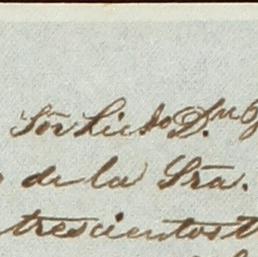 Sor Licdo Dn.
de la Sra.
trescientos t